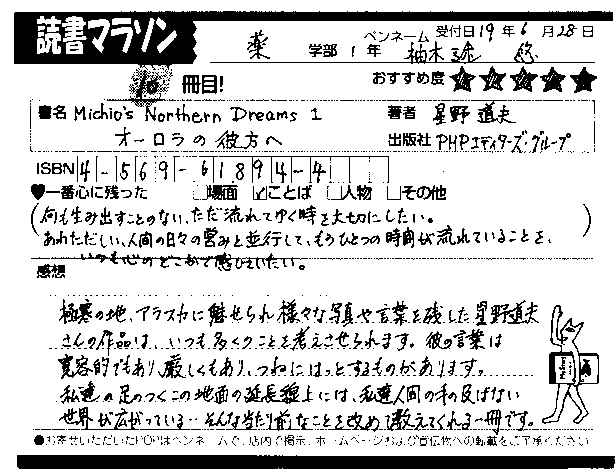 読書マラソン
受付日19年6月28日
薬 学部 1年 ペンネーム 柚木 悠
10冊目! おすすめ度 ★★★★★
書名 Michio's Northern Dreams 1
オーロラの彼方へ
著者 星野 道夫
出版社 PHPエディターズ・グループ
ISBN 4-569-61894-4
♥一番心に残った □場面 ☑ことば □人物 □その他
(何も生み出すことのない、ただ流れてゆく時を大切にしたい。
あわただしい、人間の日々の営みと並行して、もうひとつの時間が流れていることを、
いつも心のどこかで感じていたい。)
感想
極寒の地、アラスカに魅せられ様々な写真や言葉を残した星野道夫
さんの作品は、いつも多くのことを考えさせられます。彼の言葉は
寛容的でもあり、厳しくもあり、つねにはっとするものがあります。
私達の足のつくこの地面の延長線上には、私達人間の手の及ばない
世界が広がっている…そんな当たり前なことを改め教えてくれる一冊です。
●お寄せいただいたPOPはペンネームで、店内で掲示、ホームページおよび宣伝物への転載をご了承ください